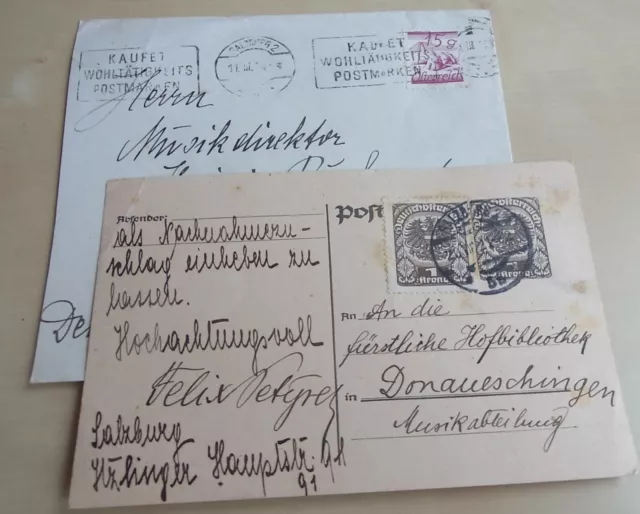 KAUFET
WOHLTÄTIGKEITS
POSTMARKEN
SALZBURG 2
KAUFET
WOHLTÄTIGKEITS
POSTMARKEN
15 g
Österreich
Herrn
Musikdirektor
Absender:
als Nachnahmenn-
schlag einheben zu
lassen.
Hochachtungsvoll
Felix Petyrek
Salzburg
Itzlinger Hauptstr. 91
91
Post
Deutschösterreich
1
Krone
Deutschösterreich
1
Krone
An An die
fürstliche Hofbibliothek
in Donaueschingen
Musikabteilung